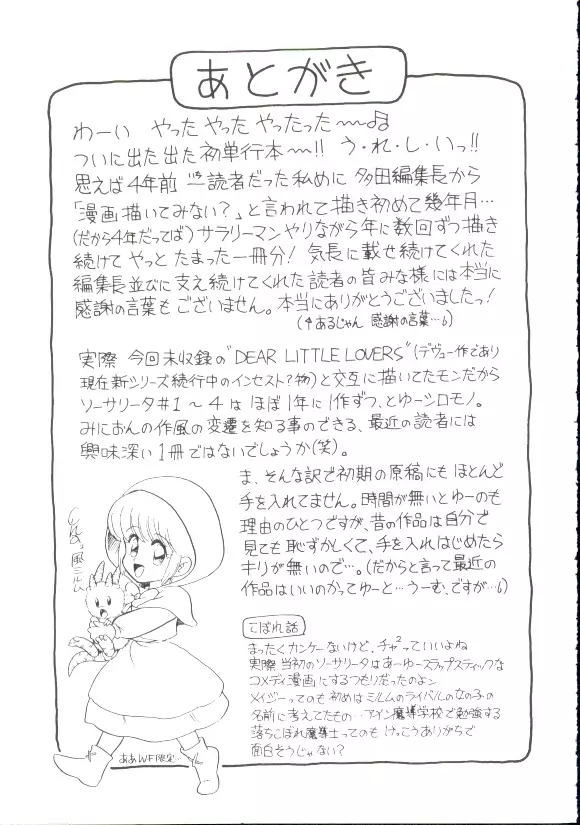 あとがき
わーい やった やった やったった〜〜♫
ついに出た出た初単行本〜〜!! う・れ・し・いっ!!
思えば4年前 一読者だった私めに 多田編集長から
「漫画描いてみない?」と言われて描き初めて幾年月…
(だから4年だってば) サラリーマンやりながら年に数回ずつ描き
続けて やっと たまった一冊分! 気長に載せ続けてくれた
編集長並びに支え続けてくれた読者の皆みな様には本当に
感謝の言葉もございません。本当にありがとうございましたっ!
(↑あるじゃん 感謝の言葉…6)
実際 今回未収録の"DEAR LITTLE LOVERS"(デヴュー作であり
現在新シリーズ続行中のインセスト?物)と交互に描いてたモンだから
ソーサリータ#1〜4は ほぼ1年に1作ずつ、とゆーシロモノ。
みにおんの作風の変遷を知る事のできる、最近の読者には
興味深い1冊ではないでしょうか(笑)。
ま、そんな訳で初期の原稿にも ほとんど
手を入れてません。時間が無いとゆーのも
理由のひとつですが、昔の作品は自分で
見ても恥ずかしくて、手を入れはじめたら
キリが無いので…。(だからと言って最近の
作品はいいのかってゆーと…うーむ、ですが…6)
風ミルム
こぼれ話
まったくカンケーないけど、チャ²っていいよね
実際 当初のソーサリータは あーゆースラップスティックな
コメディ漫画にするつもりだったのよン
メイジーってのも初めはミルムのライバルの女の子の
名前に考えてたもの…アイン魔導学校で勉強する
落ちこぼれ魔導士ってのも けっこうありがちで
面白そうじゃない?
ああWF限定…